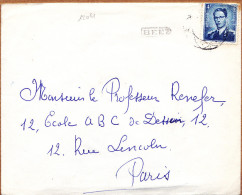 UKKEL
Monsieur le Professeur Renefer,
12, Ecole A B C de Dessin, 12.
12. Rue Lincoln.
Paris